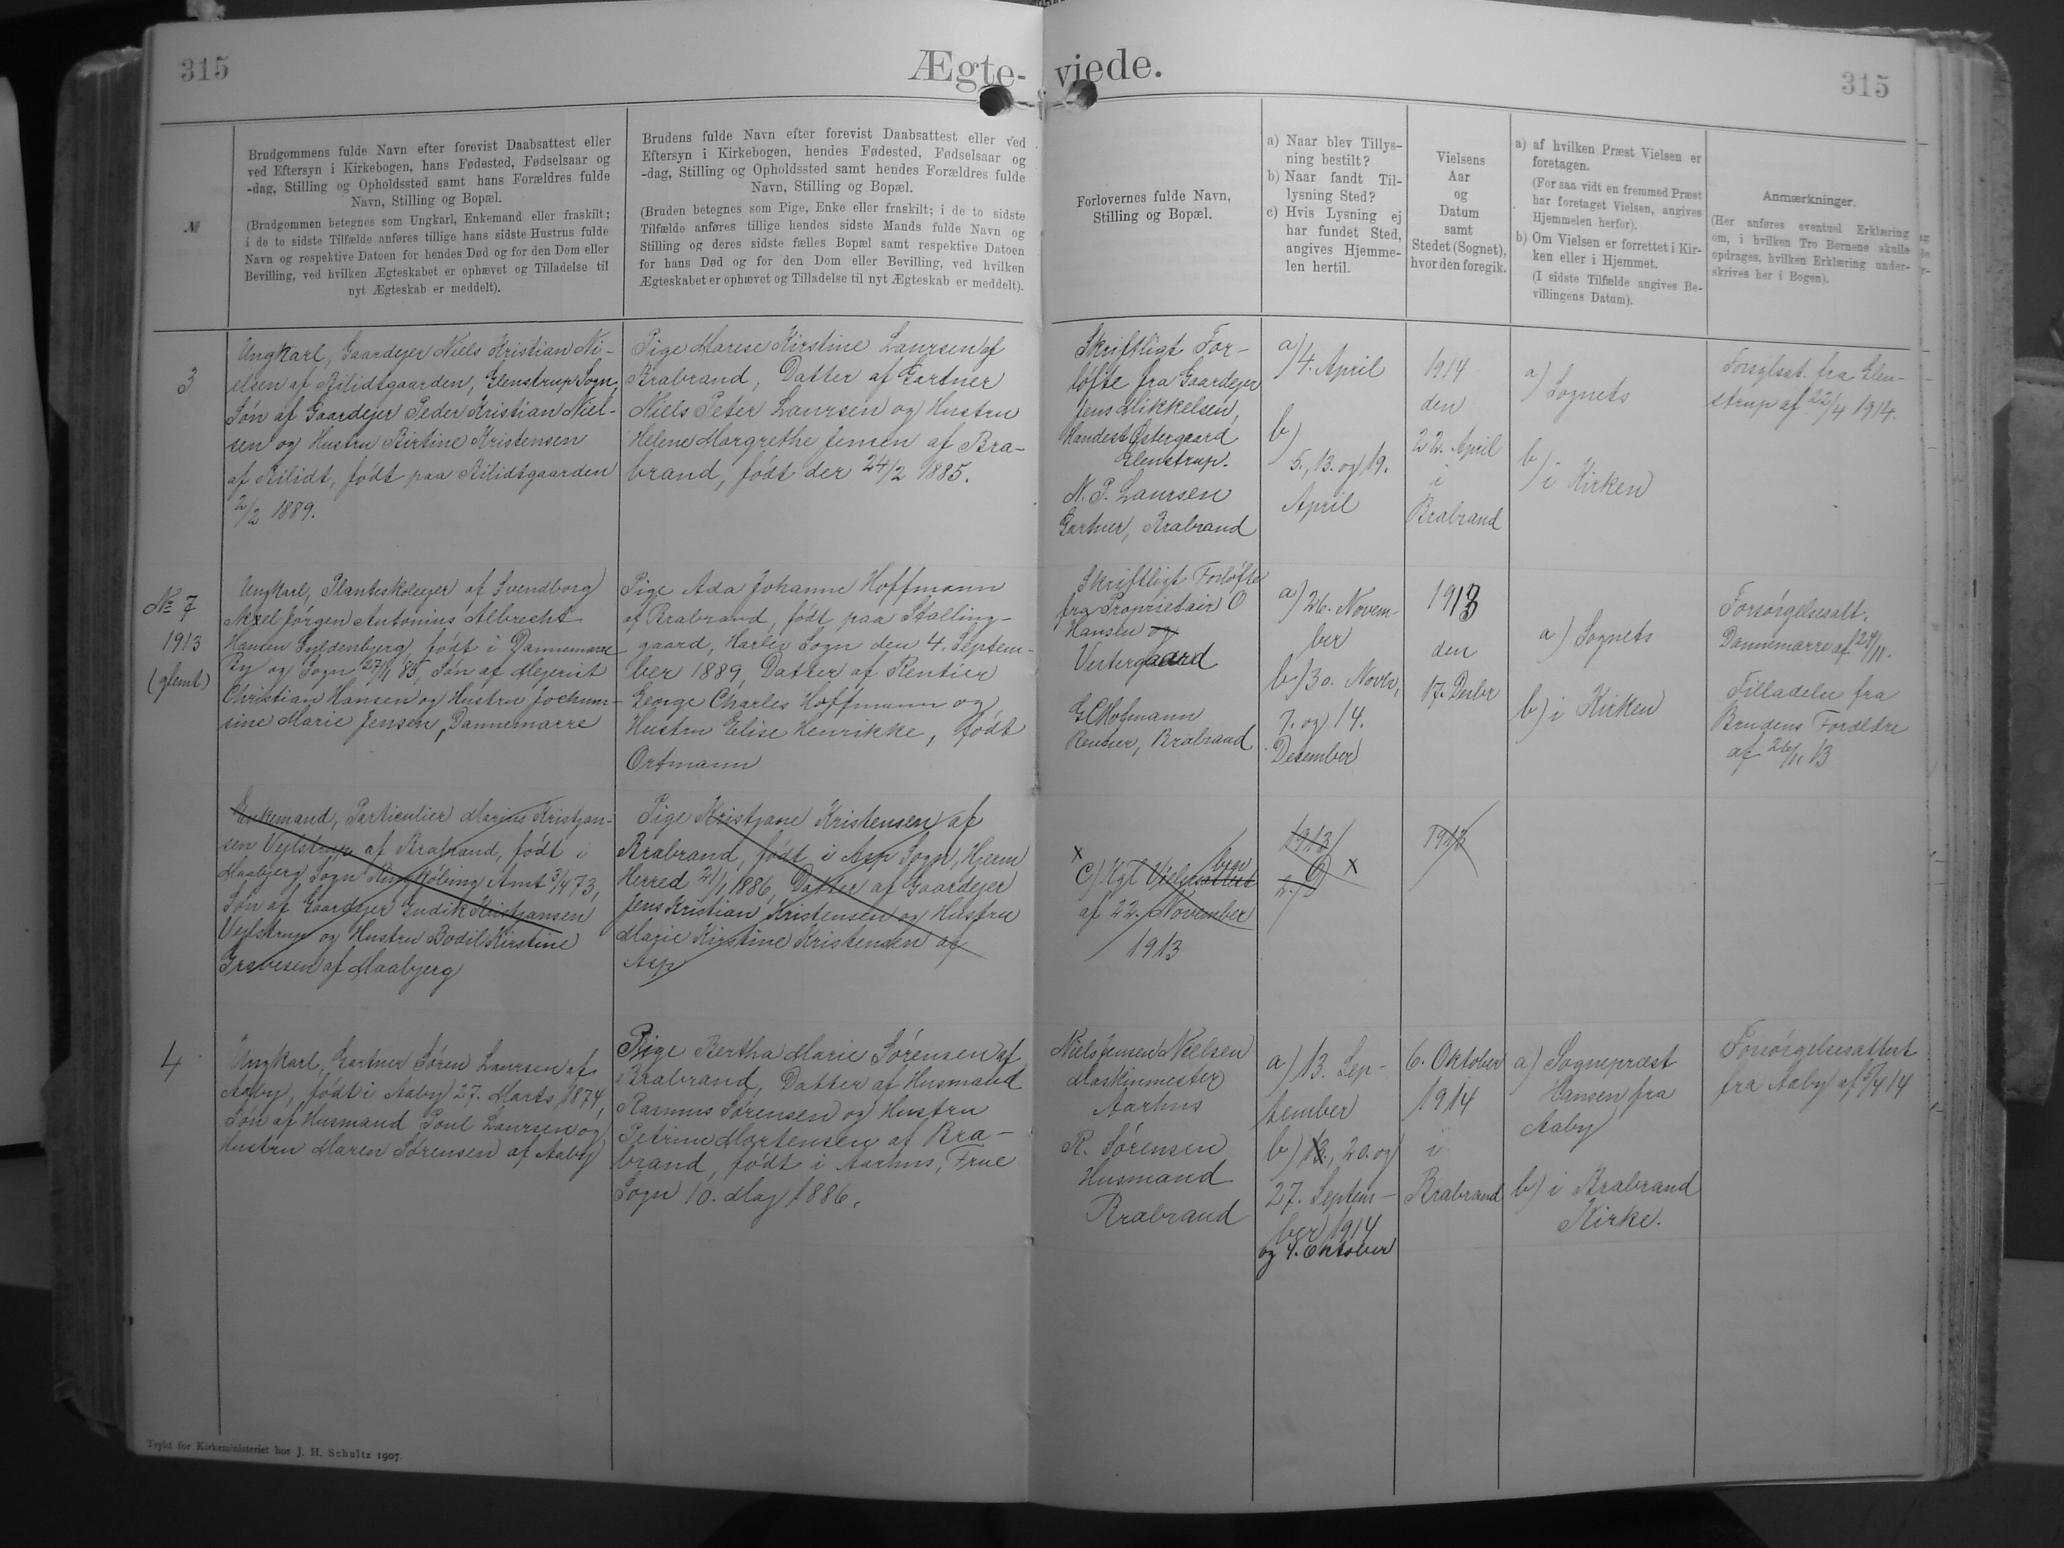 315
Ægte-
viede.
315
№
Brudgommens fulde Navn efter forevist Daabsattest eller
ved Eftersyn i Kirkebogen, hans Fødested, Fødselsaar og
-dag, Stilling og Opholdssted samt hans Forældres fulde
Navn, Stilling og Bopæl.
(Brudgommen betegnes som Ungkarl, Enkemand eller fraskilt;
i de to sidste Tilfælde anføres tillige hans sidste Hustrus fulde
Navn og respektive Datoen for hendes Død og for den Dom eller
Bevilling, ved hvilken Ægteskabet er ophævet og Tilladelse til
nyt Ægteskab er meddelt).
Brudens fulde Navn efter forevist Daabsattest eller ved
Eftersyn i Kirkebogen, hendes Fødested, Fødselsaar og
-dag, Stilling og Opholdssted samt hendes Forældres fulde
Navn, Stilling og Bopæl.
(Bruden betegnes som Pige, Enke eller fraskilt; i de to sidste
Tilfælde anføres tillige hendes sidste Mands fulde Navn og
Stilling og deres sidste fælles Bopæl samt respektive Datoen
for hans Død og for den Dom eller Bevilling, ved hvilken
Ægteskabet er ophævet og Tilladelse til nyt Ægteskab er meddelt).
Forlovernes fulde Navn,
Stilling og Bopæl.
a) Naar blev Tillys-
ning bestilt?
b) Naar fandt Til-
lysning Sted?
c) Hvis Lysning ej
har fundet Sted,
angives Hjemme-
len hertil.
Vielsens
Aar
og
Datum
samt
Stedet (Sognet),
hvor den foregik.
a) af hvilken Præst Vielsen er
foretagen.
(For saa vidt en fremmed Præst
har foretaget Vielsen, angives
Hjemmelen herfor).
b) Om Vielsen er forrettet i Kir-
ken eller i Hjemmet.
(I sidste Tilfælde angives Be-
villingens Datum).
Anmærkninger.
(Her anføres eventuel Erklæring
om, i hvilken Tro Børnene skulle
opdrages, hvilken Erklæring under-
skrives her i Bogen).
3
Ungkarl, Gaardejer Niels Kristian Ni-
elsen af Bilidtgaarden, Glenstrup Sogn,
Søn af Gaardejer Peder Kristian Niel-
sen og Hustru Birtine Kristensen
af Bilidt, født paa Bilidtgaarden
2/2 1889.
Pige Marese Kirstine Laursen af
Brabrand, Datter af Gartner
Niels Peter Laursen og Hustru
Helene Margrethe Jensen af Bra-
brand, født der 24/2 1885.
Skriftligt For-
løfte fra Gaardejer
Jens Mikkelsen,
Handest Østergaard
Glenstrup.
N. P. Laursen
Gartner, Brabrand
a) 4. April
b)
5., 13. og 19.
April
1914
den
22. April
i
Brabrand
a) Sognets
b) i Kirken
Forsglsat. fra Glen-
strup af 22/4 1914.
№ 7
1913
(glemt)
Ungkarl, Planteskoleejer af Svendborg
Aksel Jörgen Antonius Albrecht
Hansen Gyldenbjerg, født i Dannemarre
By og Sogn 27/11 85, Søn af Mejerist
Christian Hansen og Hustru Jochum-
sine Marie Jensen, Dannemarre
Pige Ada Johanne Hoffmann
af Brabrand, født paa Stalling-
gaard, Harlev Sogn den 4. Septem-
ber 1889, Datter af Rentier
George Charles Hoffmann og
Hustru Elise Henrikke, født
Ortmann
Skriftligt Forløfte
fra Proprietair O
Hansen og
Vestergaard
G C Hofmann
Rentier, Brabrand
a) 26. Novem-
ber
b) 30. Novbr,
7. og 14.
December
1913
den
17. Decbr
a) Sognets
b) i Kirken
Forsørgelsesatt.
Dannemarre af 24/11.
Tilladelse fra
Brudens Forældre
af 26/11 13
Enkemand, Particulier Marius Kristjan-
sen Vejlstrup af Brabrand, født i
Maabjerg Sogn Ringkøbing Amt 3/4 73,
Søn af Gaardejer Gudik Kristjansen
Vejlstrup og Hustru Bodil Kirstine
Gravesen af Maabjerg
Pige Kristjane Kristensen af
Brabrand, født i Asp Sogn, Hjerm
Herred 21/1 1886, Datter af Gaardejer
Jens Kristian Kristensen og Hustru
Marie Kirstine Kristensen af
Asp
x
brev
c) Kgl Vielsesattest
af 22. November
1913
1913
x
1913
4
Ungkarl, Gartner Søren Laursen af
Aaby, født i Aaby 27. Marts 1874,
Søn af Husmand Poul Laursen og
Hustru Maren Sørensen af Aaby
Pige Bertha Marie Sørensen af
Brabrand, Datter af Husmand
Rasmus Sørensen og Hustru
Petrine Mortensen af Bra-
brand, født i Aarhus, Frue
Sogn 10. Maj 1886.
Niels Jensen Nielsen
Maskinmester
Aarhus
R. Sørensen
Husmand
Brabrand
a) 13. Sep-
tember
b) 13., 20. og
27. Septem-
ber 1914
og 4. Oktober
6. Oktober
1914
i
Brabrand
a) Sognepræst
Hansen fra
Aaby
b) i Brabrand
Kirke.
Forsørgelsesattest
fra Aaby af 14
Trykt for Kirkeministeriet hos J. H. Schultz 1907.